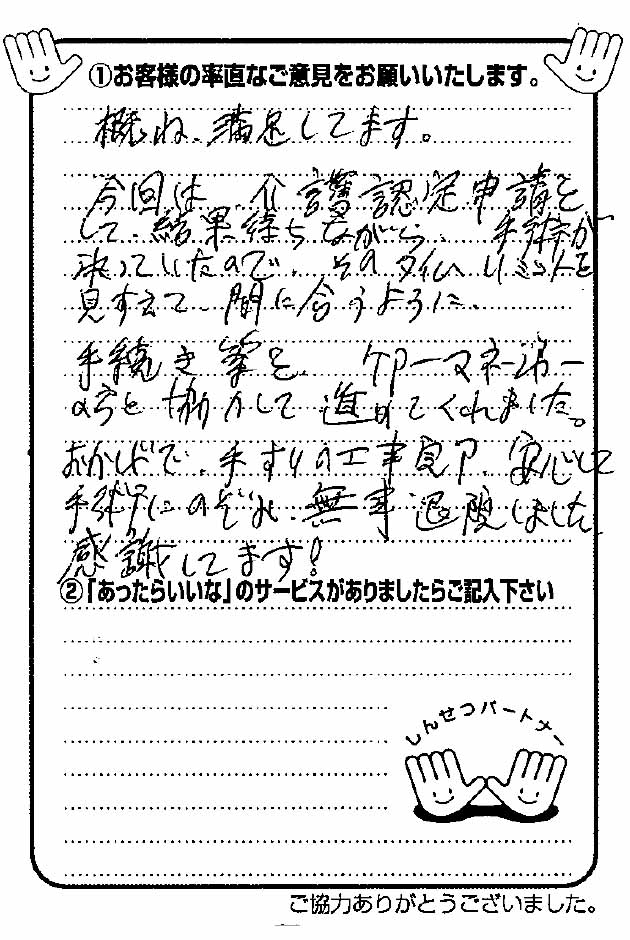 ①お客様の率直なご意見をお願いいたします。
概ね、満足してます。
今回は 介護認定申請を
して、結果待ちながら、手術が
決っていたので、そのタイムリミットを
見すえて、間に合うように、
手続き等を、ケアーマネージャー
と協力して進めてくれました。
おかげで、手すりの工事完了、安心して
手術にのぞみ、無事退院しました
感謝してます!
②「あったらいいな」のサービスがありましたらご記入下さい
しんせつパートナー
ご協力ありがとうございました。